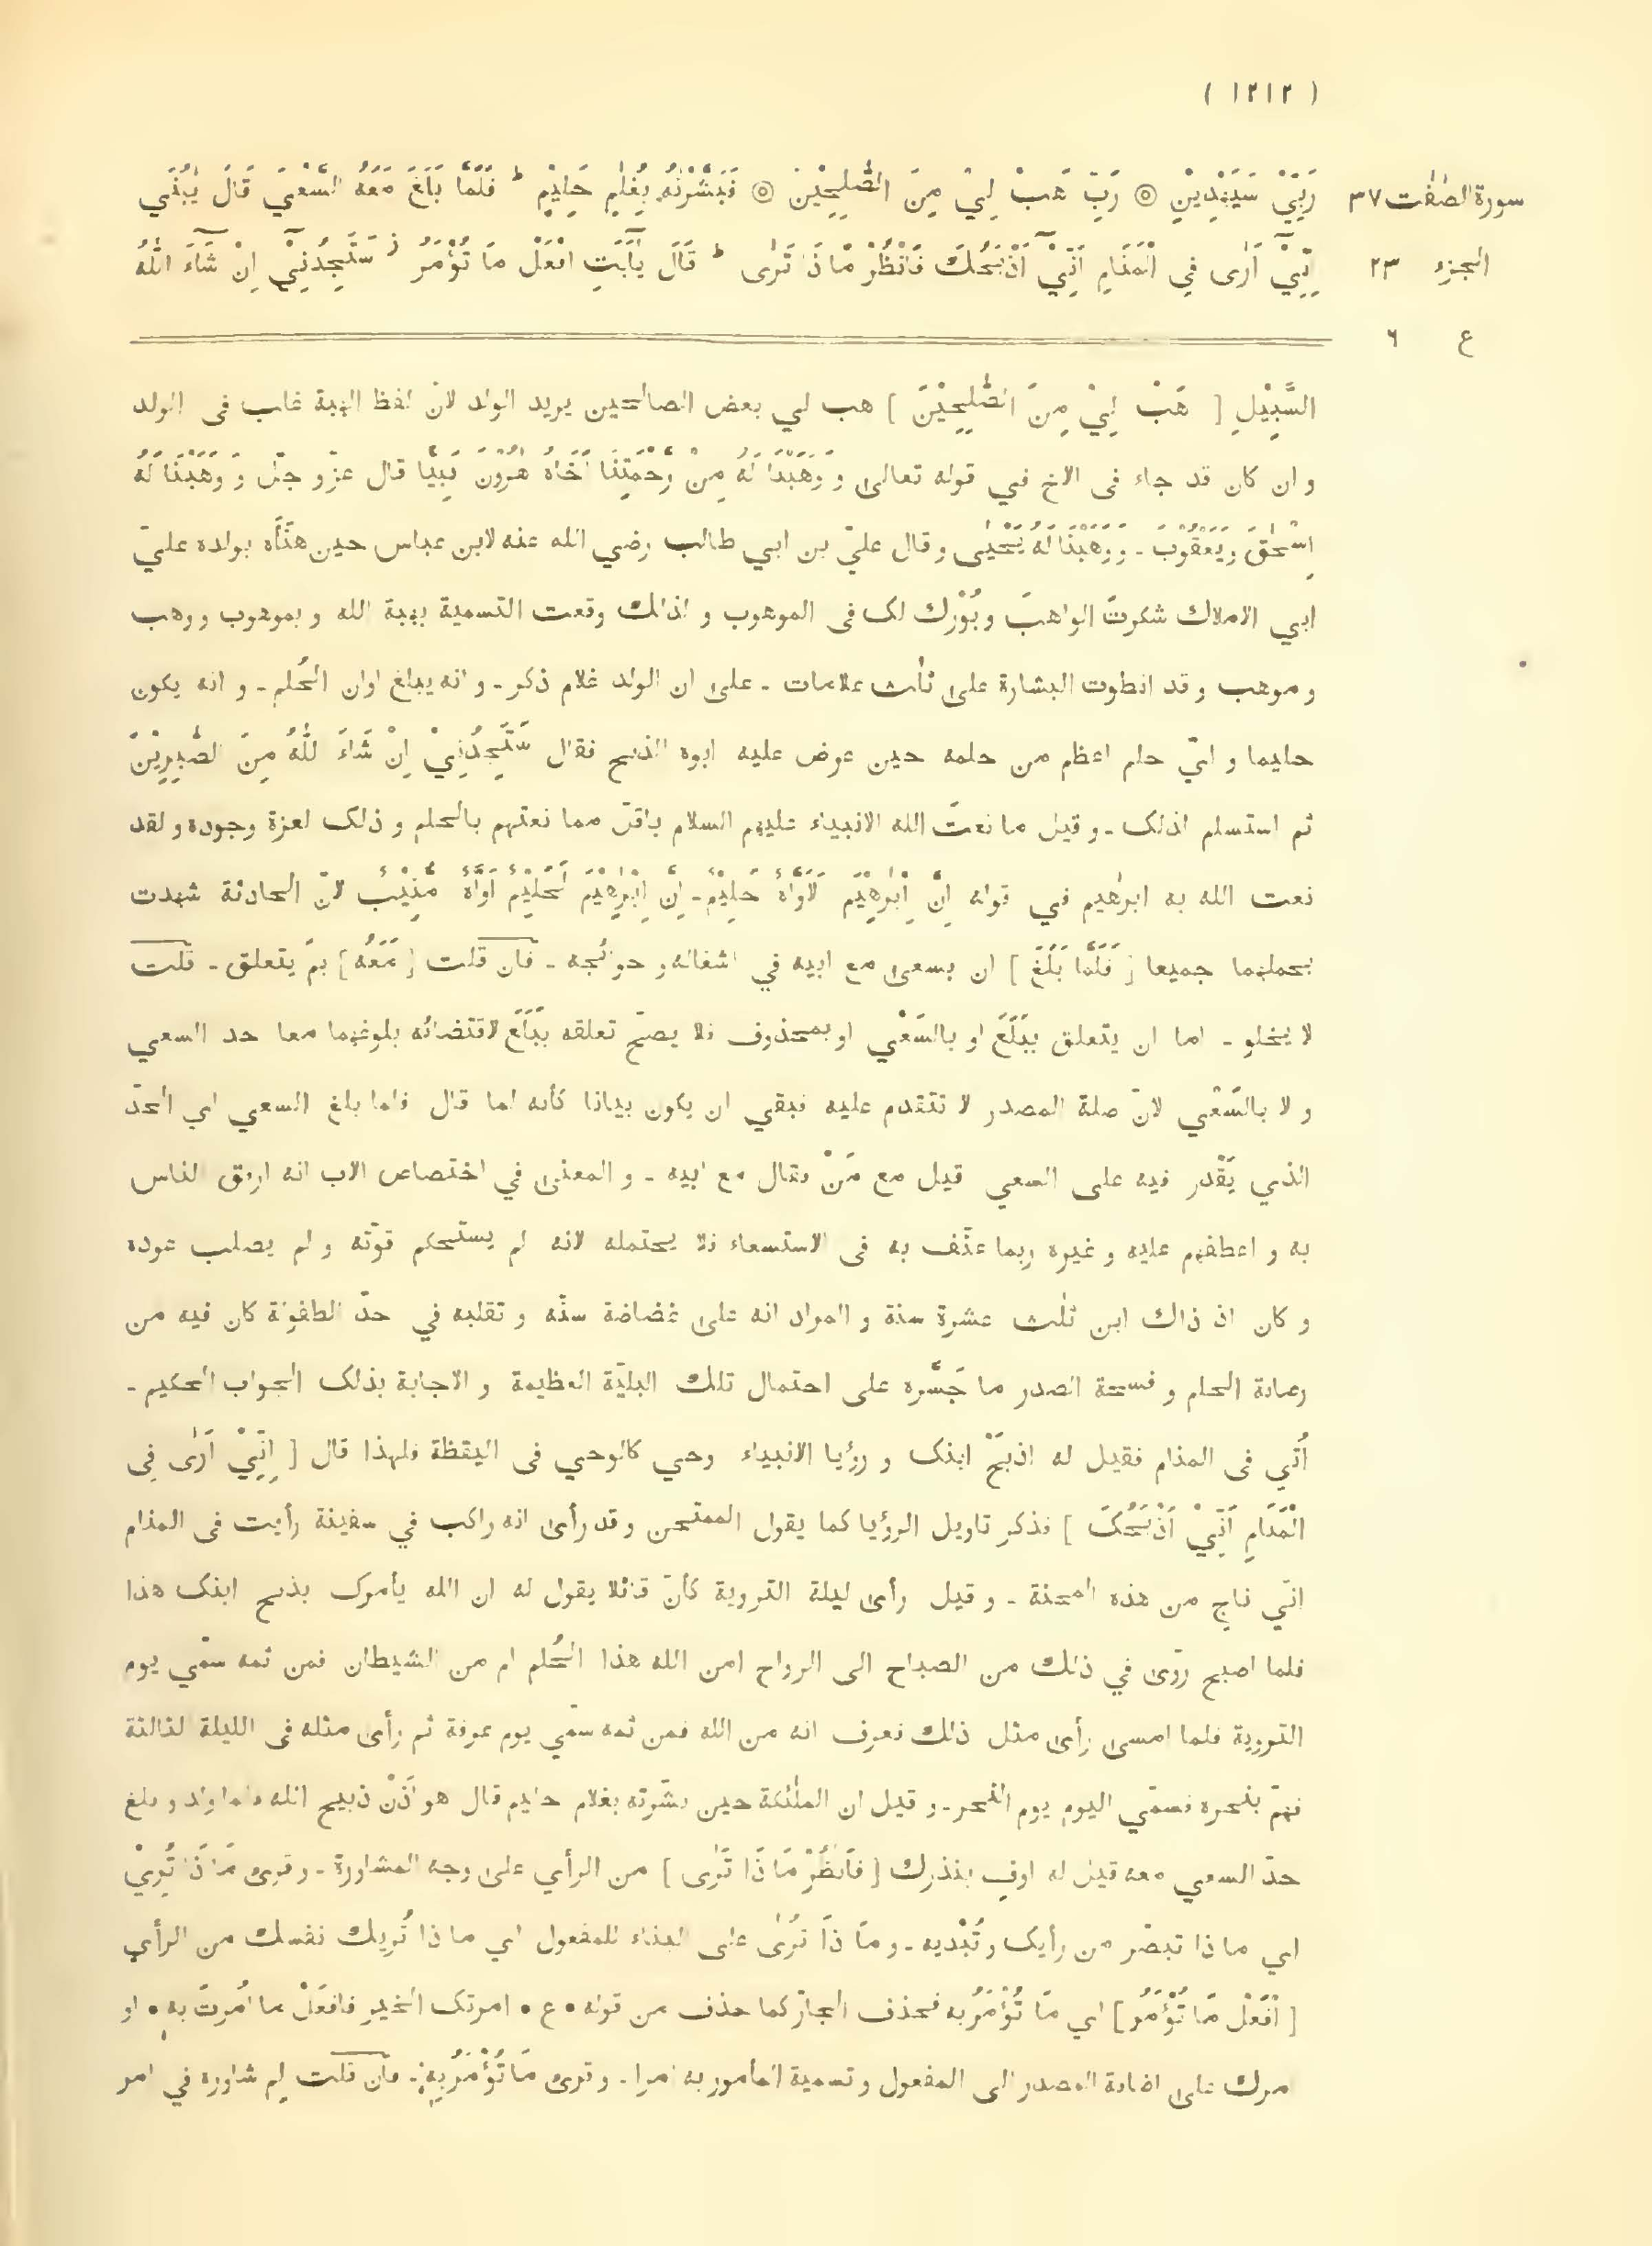 ( ١٢١٢ )
سورة الصّٰفّٰت ٣٧
الجزء ٢٣
ع ٦
رَبِّيْ سَيَهْدِيْنِ ۞ رَبِّ هَبْ لِيْ مِنَ الصّٰلِحِيْنَ ۞ فَبَشَّرْنٰهُ بِغُلٰمٍ حَلِيْمٍ ط فَلَمَّا بَلَغَ مَعَهُ السَّعْيَ قَالَ يٰبُنَيَّ
اِنِّيْٓ اَرٰى فِي الْمَنَامِ اَنِّيْٓ اَذْبَحُكَ فَانْظُرْ مَا ذَا تَرٰى ط قَالَ يٰٓاَبَتِ افْعَلْ مَا تُؤْمَرُ ز سَتَجِدُنِيْٓ اِنْ شَآءَ اللّٰهُ
السَّبِيْلِ [ هَبْ لِيْ مِنَ الصّٰلِحِيْنَ ] هب لي بعض الصالحين يريد الولد لانّ لفظ الهبة غلب فى الولد
و ان كان قد جاء فى الاخ في قوله تعالى وَ وَهَبْنَا لَهُ مِنْ رَّحْمَتِنَا اَخَاهُ هٰرُوْنَ نَبِيًّا قال عزّ و جلّ وَ وَهَبْنَا لَهُ
اِسْحٰقَ وَيَعْقُوْبَ - وَ وَهَبْنَا لَهُ يَحْيٰى و قال عليّ بن ابي طالب رضي الله عنه لابن عباس حين هنّأه بولده عليّ
ابي الاملاك شكرتَ الواهبَ و بُوْرك لک فى الموهوب و لذلك وقعت التسمية بهبة الله و بموهوب و وهب
و موهب و قد انطوت البشارة على ثلٰث علامات - على ان الولد غلام ذكر - و انه يبلغ اوان الحُلم - و انه يكون
حليما و ايّ حلم اعظم من حلمه حين عرض عليه ابوه الذبح فقال سَتَجِدُنِيْ اِنْ شَاءَ اللّٰهُ مِنَ الصّٰبِرِيْنَ
ثم استسلم لذلک - و قيل ما نعت الله الانبياء عليهم السلام باقلّ مما نعتهم بالحلم و ذلک لعزة وجوده و لقد
نعت الله به ابرٰهيم في قوله اِنَّ اِبْرٰهِيْمَ لَاَوَّاهٌ حَلِيْمٌ - اِنَّ اِبْرٰهِيْمَ لَحَلِيْمٌ اَوَّاهٌ مُّنِيْبٌ لانّ الحادثة شهدت
بحملهما جميعا [ فَلَمَّا بَلَغَ ] ان يسعى مع ابيه في اشغاله و حوائجه - فان قلت [ مَعَهُ ] بمَ يتعلق - قلت
لا يخلو - اما ان يتعلق بِبَلَغَ او بالسَّعْي او بمحذوف فلا يصحّ تعلقه بِبَلَغَ لاقتضائه بلوغهما معا حد السعي
و لا بالسَّعْي لانّ صلة المصدر لا تتقدم عليه فبقي ان يكون بيانا كأنه لما قال فلما بلغ السعي اي الحدّ
الذي يَقْدر فيه على السعي قيل مع مَنْ فقال مع ابيه - و المعنى في اختصاص الاب انه ارفق الناس
به و اعطفهم عليه و غيره ربما عنّف به فى الاستسعاء فلا يحتمله لانه لم يستحكم قوّته و لم يصلب عوده
و كان اذ ذاك ابن ثلٰث عشرة سنة و المراد انه على غضاضة سنّه و تقلبه في حدّ الطفولة كان فيه من
رصانة الحلم و فسحة الصدر ما جَسَّره على احتمال تلك البليّة العظيمة و الاجابة بذلک الجواب الحكيم -
اُتي فى المنام فقيل له اذبَحْ ابنک و رؤيا الانبياء وحي كالوحي فى اليقظة فلهذا قال [ اِنِّيْ اَرٰى فِى
الْمَنَامِ اَنِّيْ اَذْبَحُكَ ] فذكر تاويل الرؤيا كما يقول الممتحن و قد رأى انه راكب في سفينة رأيت فى المنام
انّي ناجٍ من هذه المحنة - و قيل رأى ليلة التروية كأنّ قائلا يقول له ان الله يأمرک بذبح ابنک هذا
فلما اصبح روّى في ذلك من الصباح الى الرواح امن الله هذا الحُلم ام من الشيطان فمن ثمه سمّي يوم
التروية فلما امسى رأى مثل ذلك فعرف انه من الله فمن ثمه سمّي يوم عرفة ثم رأى مثله فى الليلة الثالثة
فهمّ بنحره فسمّي اليوم يوم النحر - و قيل ان الملٰئكة حين بشّرته بغلام حليم قال هو اذَنْ ذبيح الله فلما ولد و بلغ
حدّ السعي معه قيل له اوفِ بنذرك [ فَانْظُرْ مَا ذَا تَرٰى ] من الرأي على وجه المشاورة - و قرئ مَا ذَا تُرِيْ
اي ما ذا تبصّر من رأيک و تُبْديه - و مَا ذَا تُرٰى على البناء للمفعول اي ما ذا تُريك نفسك من الرأي
[ اِفْعَلْ مَا تُؤْمَرُ ] اي مَا تُؤْمَرُ به فحذف الجارّ كما حذف من قوله • ع • امرتک الخير فافعَلْ ما اُمرتَ به • او
مرك على اضافة المصدر الى المفعول و تسمية المأمور به امرا - و قرئ مَا تُؤْمَرُ بِهٖ - فان قلت لِم شاوره في امر